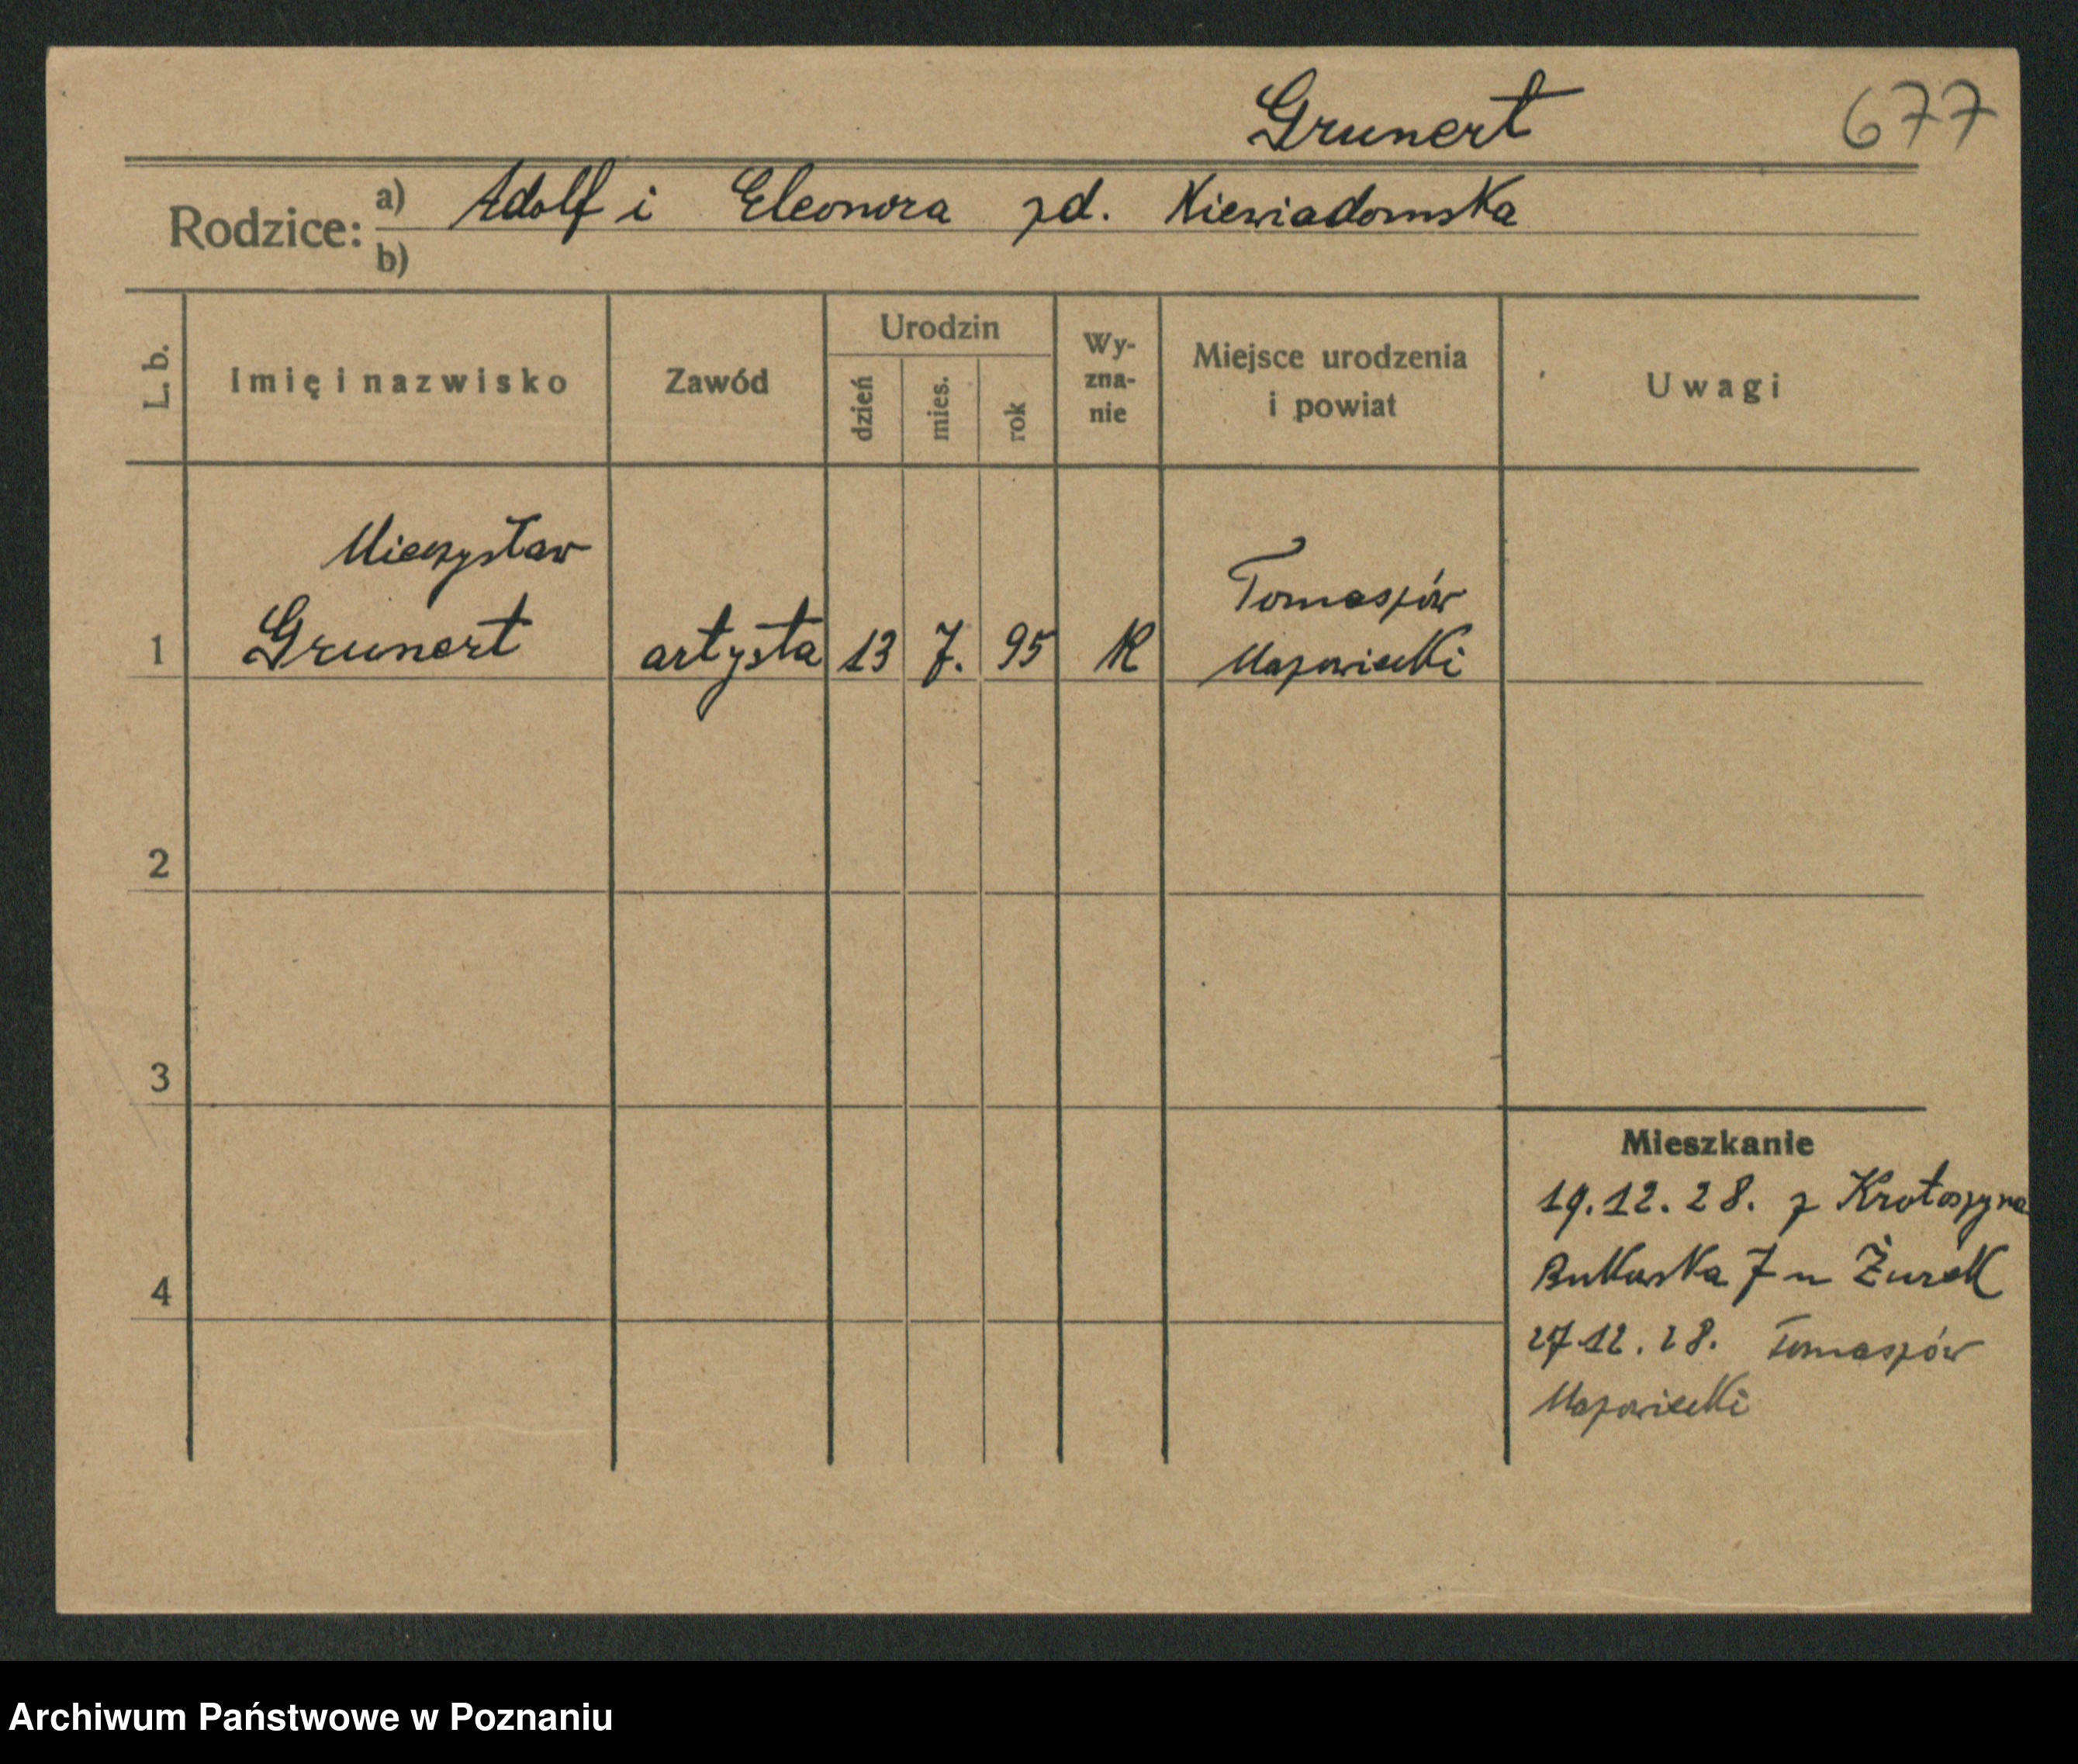 Grunert 677
Rodzice: a) Adolf i Eleonora zd. Niewiadomska
b)
L. b.
Imię i nazwisko
Zawód
Urodzin
dzień
mies.
rok
Wy-
zna-
nie
Miejsce urodzenia
i powiat
Uwagi
Mieczysław
Tomaszów
1 Grunert artysta 13 7. 95 K Mazowiecki
2
3
4
Mieszkanie
19.12.28. z Krotoszyna
7 u Żurek
27.12.28. Tomaszów
Mazowiecki
Archiwum Państwowe w Poznaniu